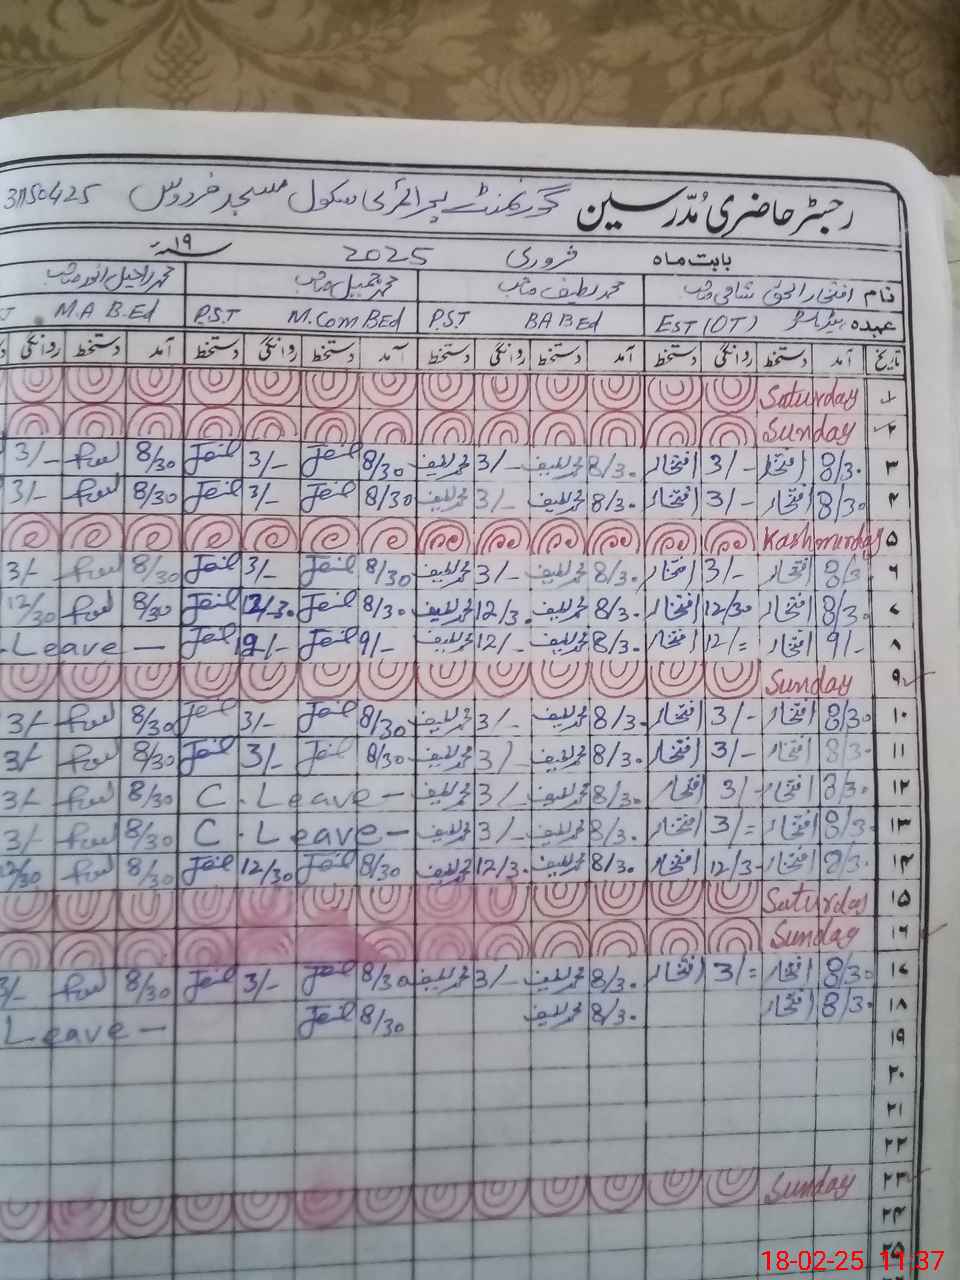 رجسٹر حاضری مُدّرسین گورنمنٹ پرائمری سکول مسجد فردوس 31150425
بابت ماہ فروری 2025 ۱۹ء
نام افتخار الحق شامی صاحب محمد لطیف صاحب محمد جمیل صاحب محمد راحیل انور صاحب
عہدہ ہیڈ ماسٹر EST (OT) BA BEd P.S.T M.Com BEd P.S.T M.A B.Ed
تاریخ آمد دستخط روانگی دستخط آمد دستخط روانگی دستخط آمد دستخط روانگی دستخط آمد دستخط روانگی
۱ Saturday
۲ Sunday
۳ 8/30 افتخار 3/- افتخار 8/30 محمد لطیف 3/- محمد لطیف 8/30 Jamil 3/- Jamil 8/30 3/-
۴ 8/30 افتخار 3/- افتخار 8/30 محمد لطیف 3/- محمد لطیف 8/30 Jamil 3/- Jamil 8/30 3/-
۵ Kashmirday
۶ 8/3 افتخار 3/- افتخار 8/30 محمد لطیف 3/- محمد لطیف 8/30 Jamil 3/- Jamil 8/30 3/-
۷ 8/30 افتخار 12/30 افتخار 8/30 محمد لطیف 12/30 محمد لطیف 8/30 Jamil 12/30 Jamil 8/30 12/30
۸ 9/- افتخار 12/= افتخار 8/30 محمد لطیف 12/- محمد لطیف 9/- Jamil 12/- Jamil Leave
۹ Sunday
۱۰ 8/30 افتخار 3/- افتخار 8/30 محمد لطیف 3/- محمد لطیف 8/30 Jamil 3/- Jamil 8/30 3/-
۱۱ 8/30 افتخار 3/- افتخار 8/30 محمد لطیف 3/ محمد لطیف 8/30 Jamil 3/- Jamil 8/30 3/-
۱۲ 8/30 افتخار 3/- افتخار 8/30 محمد لطیف 3/ محمد لطیف C. Leave - 8/30 3/-
۱۳ 8/30 افتخار 3/= افتخار 8/30 محمد لطیف 3/- محمد لطیف C. Leave - 8/30 3/-
۱۴ 8/30 افتخار 12/3- افتخار 8/30 محمد لطیف 12/30 محمد لطیف 8/30 Jamil 12/30 Jamil 8/30 12/30
۱۵ Saturday
۱۶ Sunday
۱۷ 8/30 افتخار 3/= افتخار 8/30 محمد لطیف 3/- محمد لطیف 8/30 Jamil 3/- Jamil 8/30 3/-
۱۸ 8/30 افتخار 8/30 محمد لطیف 8/30 Jamil Leave -
۱۹
۲۰
۲۱
۲۲
۲۳ Sunday
۲۴
۲۵
18-02-25 11:37